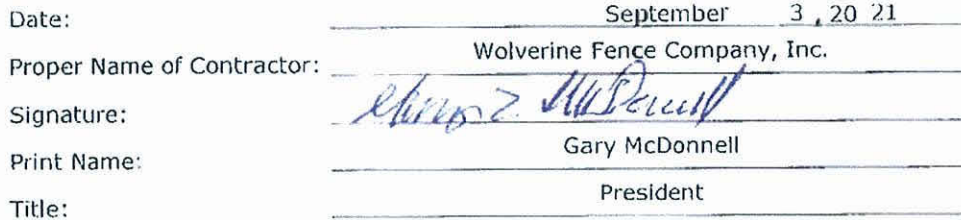 Date: September 3, 20 21
Proper Name of Contractor: Wolverine Fence Company, Inc.
Signature: McDonnell
Print Name: Gary McDonnell
Title: President